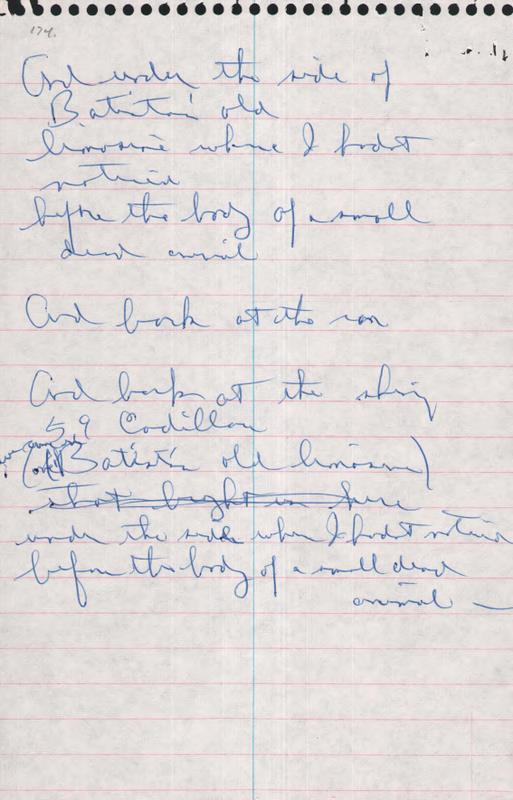 174.
And under the side of
Batista's old
limosine where I hadnt
noticed
before the body of a small
dead animal
And back at the
And back at the shiny
59 Cadillac
(and Batista's old limosine)
that bright in here
under the side where I hadnt noticed
before the body of a small dead
animal —